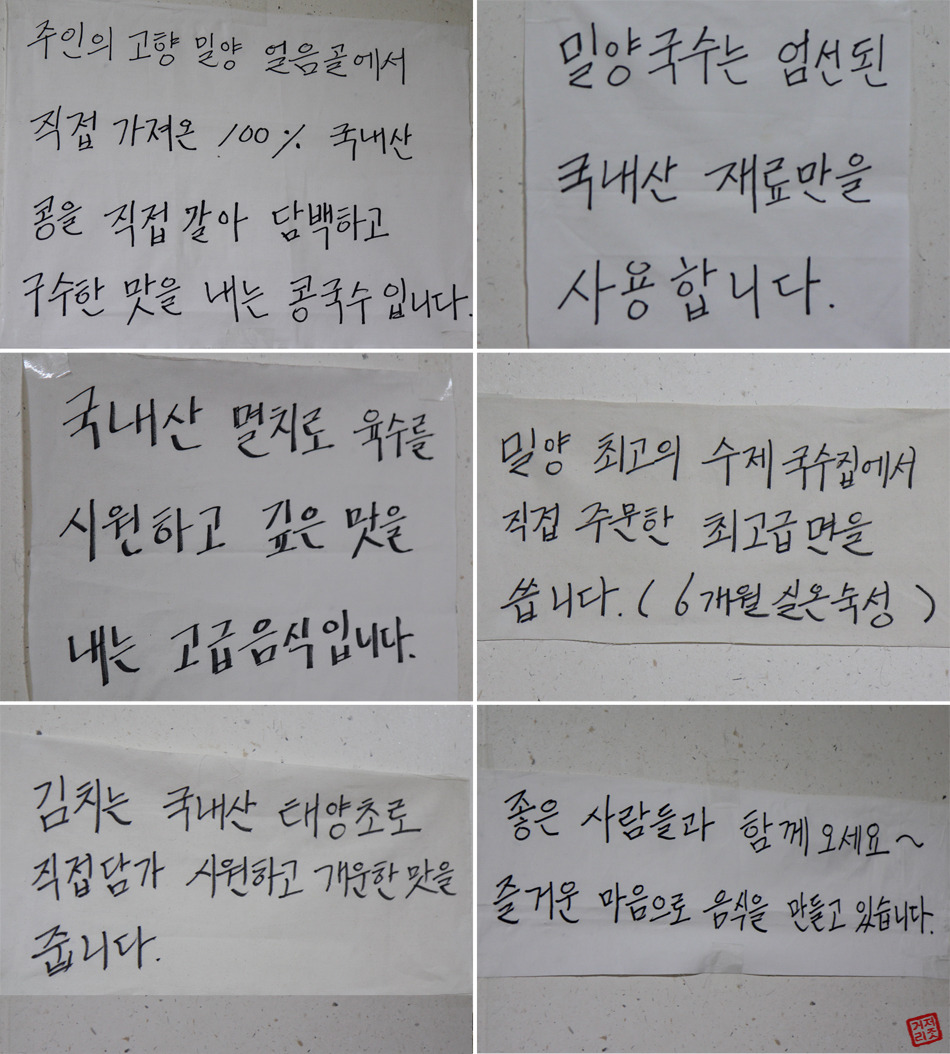 주인의 고향 밀양 얼음골에서
직접 가져온 100% 국내산
콩을 직접 갈아 담백하고
구수한 맛을 내는 콩국수입니다.
밀양국수는 엄선된
국내산 재료만을
사용합니다.
국내산 멸치로 육수를
시원하고 깊은 맛을
내는 고급음식입니다.
밀양 최고의 수제 국수집에서
직접 주문한 최고급면을
씁니다. (6개월 실온숙성)
김치는 국내산 태양초로
직접담가 시원하고 개운한 맛을
줍니다.
좋은 사람들과 함께 오세요~
즐거운 마음으로 음식을 만들고 있습니다.
거져
리즈